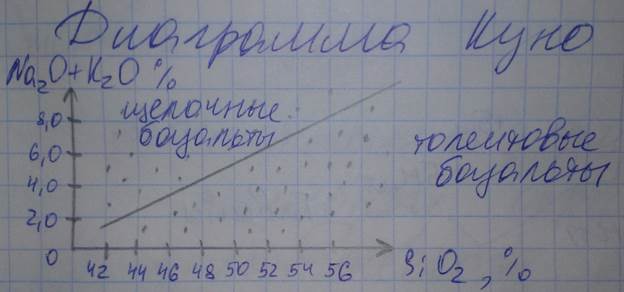 Диаграмма Куно
Na₂O+K₂O %
щелочные
базальты
толеитовые
базальты
8,0
6,0
4,0
2,0
0
42 44 46 48 50 52 54 56
SiO₂, %